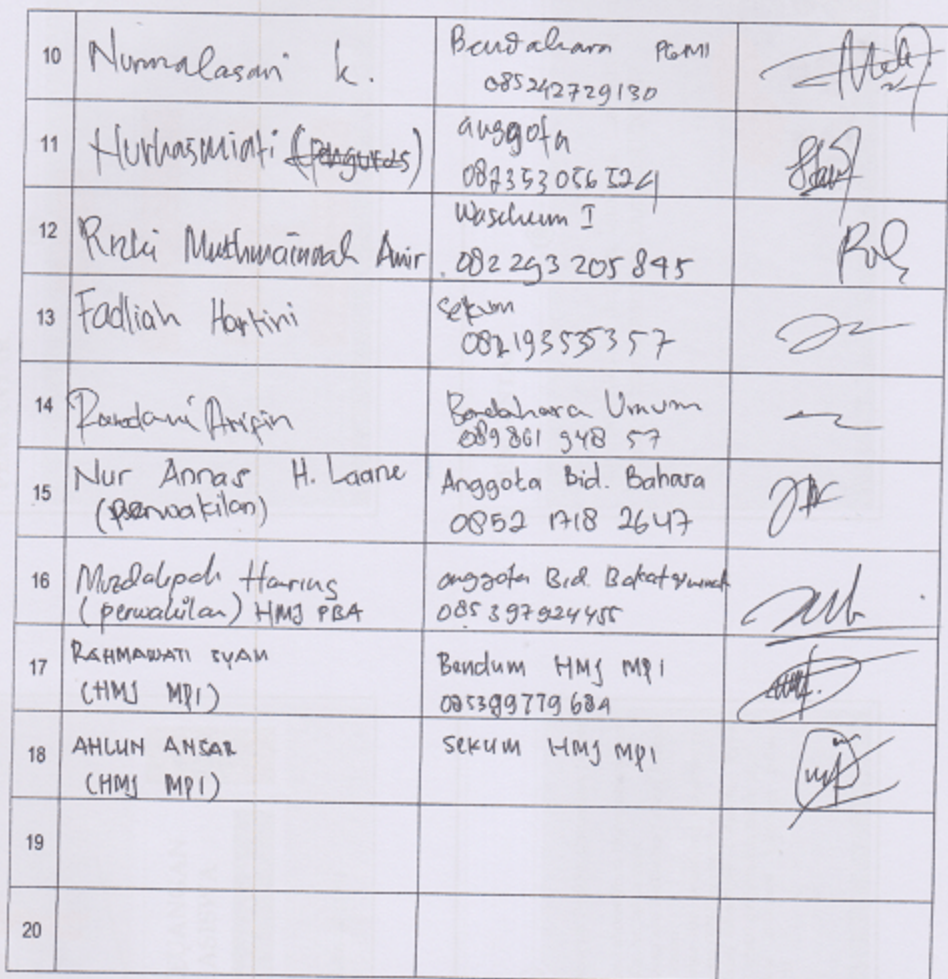 10 Nurmalasari K. Bendahara PGMI
085242729130
11 Nurhasmiati (pengurus) anggota
082353056524
12 Rizki Muthmainnah Amir Wasekum I
082293205845
13 Fadliah Hartini Sekum
082193535357
14 Ramdani Aripin Bendahara Umum
089861 948 57
15 Nur Annas H. Laane Anggota Bid. Bahara
(perwakilan) 0852 1718 2647
16 Muzdalipah Haring anggota Bid.
(perwakilan) HMJ PBA 085397924455
17 RAHMAWATI SYAM Bendum HMJ MPI
(HMJ MPI) 085399779684
18 AHLUN ANSAR SEKUM HMJ MPI
(HMJ MPI)
19
20